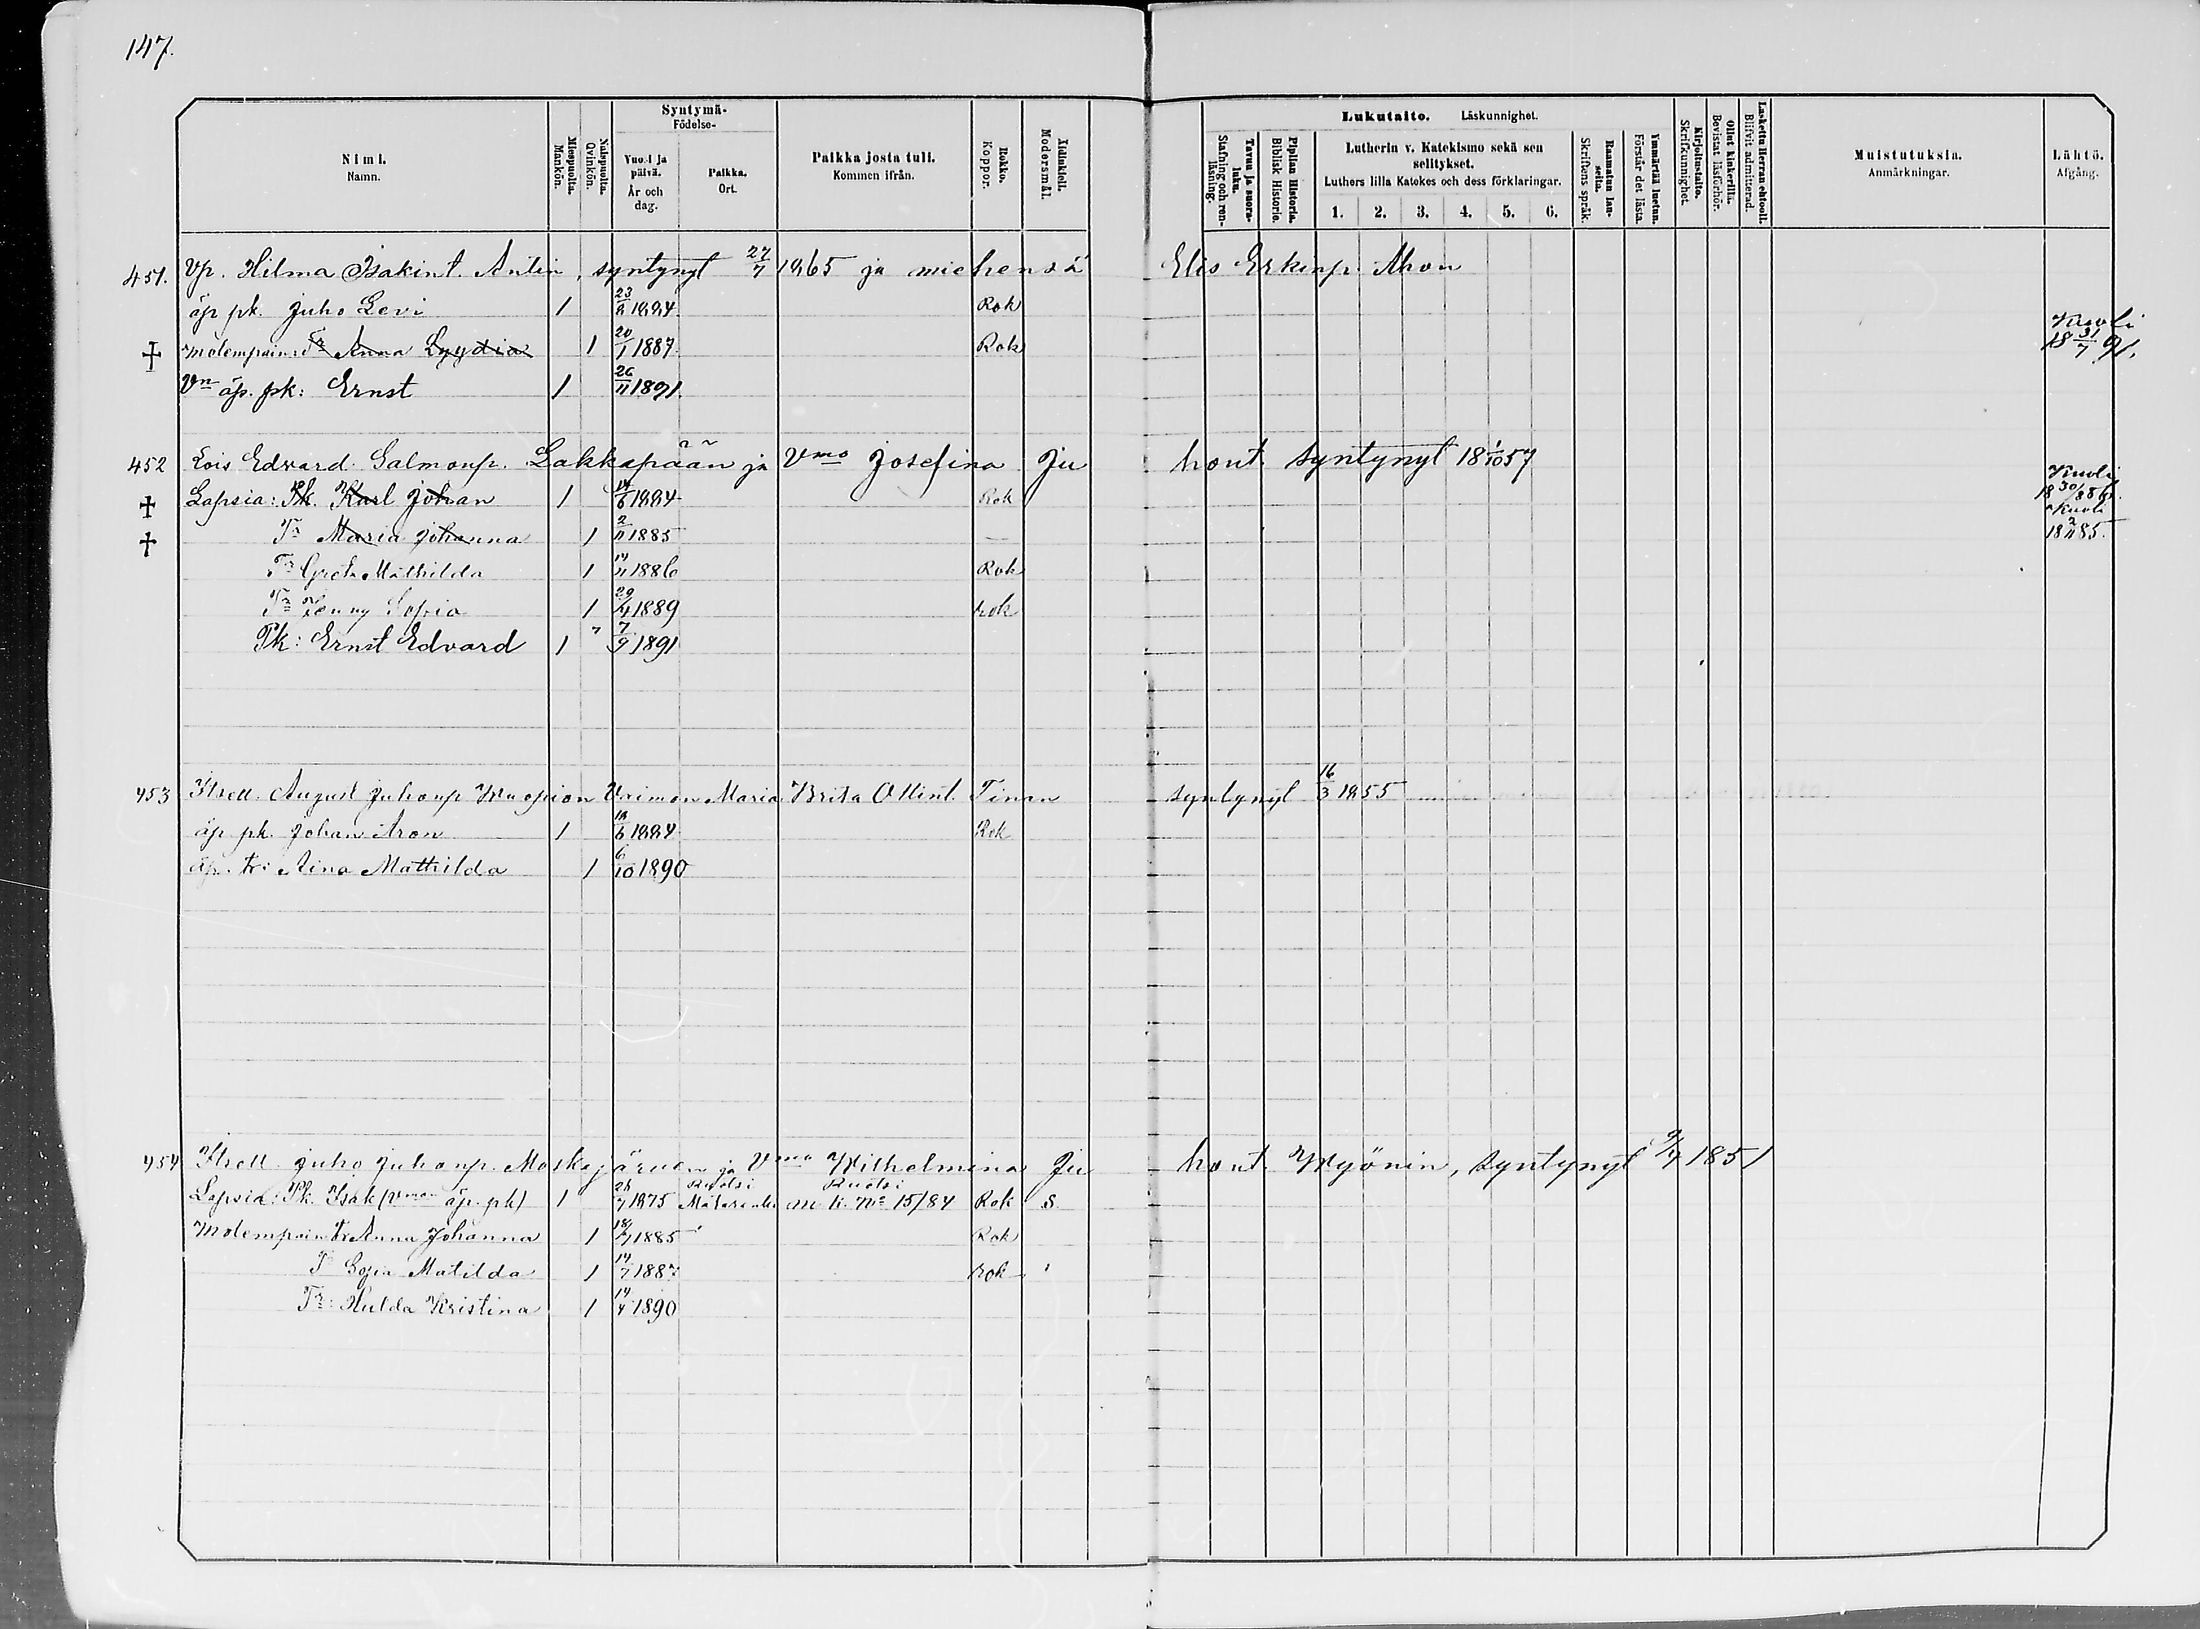 147.
Nimi.
Namn.
Miespuolia.
Mankön.
Naispuolia.
Qvinkön.
Syntymä-
Födelse-
Vuosi ja päivä.
År och dag.
Paikka.
Ort.
Paikka josta tuli.
Kommen ifrån.
Rokko.
Koppor.
Äidinkieli.
Modersmål.
Lukutaito. Läskunnighet.
Tavuu ja suora-luku.
Stafning och ren-läsning.
Piplian Historia.
Biblisk Historie.
Lutherin v. Katekismo sekä sen
selitykset.
Luthers lilla Katekes och dess förklaringar.
1. 2. 3. 4. 5. 6.
Raamatun lau-seita.
Skriftens språk.
Ymmärtää luetun.
Förstår det lästa.
Kirjoitustaito.
Skrifkunnighet.
Ollut kinkerillä.
Bevistat läsförhör.
Laskettu Herran ehtooll.
Blifvit admitterad.
Muistutuksia.
Anmärkningar.
Lähtö.
Afgång.
451. Vp. Hilma Isakint. Antin, syntynyt 27/7 1865 ja miehensä Elis Erkinp. Ahon
äp pk. Juho Levi 1 23/8 1884. Rok
† molempain Tr Anna Lyydia 1 20/1 1887. Rok Kuoli 18 31/7 91.
Vn äp. pk: Ernst 1 26/11 1891.
452 Lois Edvard Salmonp. Lakkapään ja Vmo Josefina Ju hont. syntynyt 18 1/10 57
† Lapsia: Pk. Karl Johan 1 14/6 1884 Rok Kuoli
† Tr Maria Johanna 1 2/11 1885 — Kuoli 18 2/11 85.
Tr Greta Mathilda 1 14/11 1886 Rok
Tr Jenny Sofia 1 29/4 1889 rok
Pk: Ernst Edvard 1 7/9 1891
453 Itsell. August Juhonp Vaimon Maria Brita Ollint. syntynyt 16/3 1855
äp pk. Johan Aron 1 18/6 1884 Rok
äp. tr: Aina Mathilda 1 6/10 1890
454 Itsell. Juho Juhonp. Moskojärven ja Vmo Wilhelmina Ju hont. Myönin, syntynyt 9/7 1851
Ruotsi Ruotsi
Lapsia: Pk. Isak (Vmon äp. pk) 1 28/7 1875 m. k. No 15/84 Rok s
Molempain tr Anna Johanna 1 18/7 1885 Rok
Tr Sofia Matilda 1 14/7 1887 rok
Tr: Hulda Kristina 1 14/4 1890